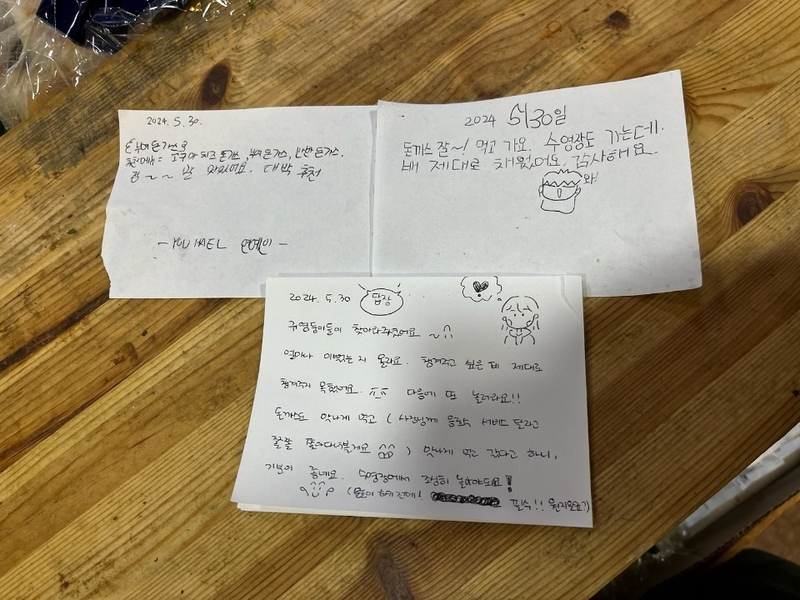 2024. 5. 30.
추천메뉴 : 고구마 치즈 돈가스, 돈가스, 반반 돈가스.
정~~말 맛있어요. 대박 추천
2024 5월 30일
돈까스 잘~ 먹고 가요. 수영장도 가는데.
배 제대로 채웠어요. 감사해요.
와!
2024. 5. 30 답장
귀염둥이들이 찾아와주었어요 ~
얼마나 이뻤는지 몰라요. 챙겨주고 싶은데 제대로
챙겨주지 못했어요. 다음에 또 놀러와요!!
돈까스도 맛나게 먹고 ( 사장님께 음료수 서비스 달라고
졸졸 쫓아다녀볼게요 ) 맛나게 먹고 갔다고 하니,
기분이 좋네요. 수영장에서 조심히 놀아야되요!
( 물놀이 하기 전에! 필수!! 뭔지알죠?)